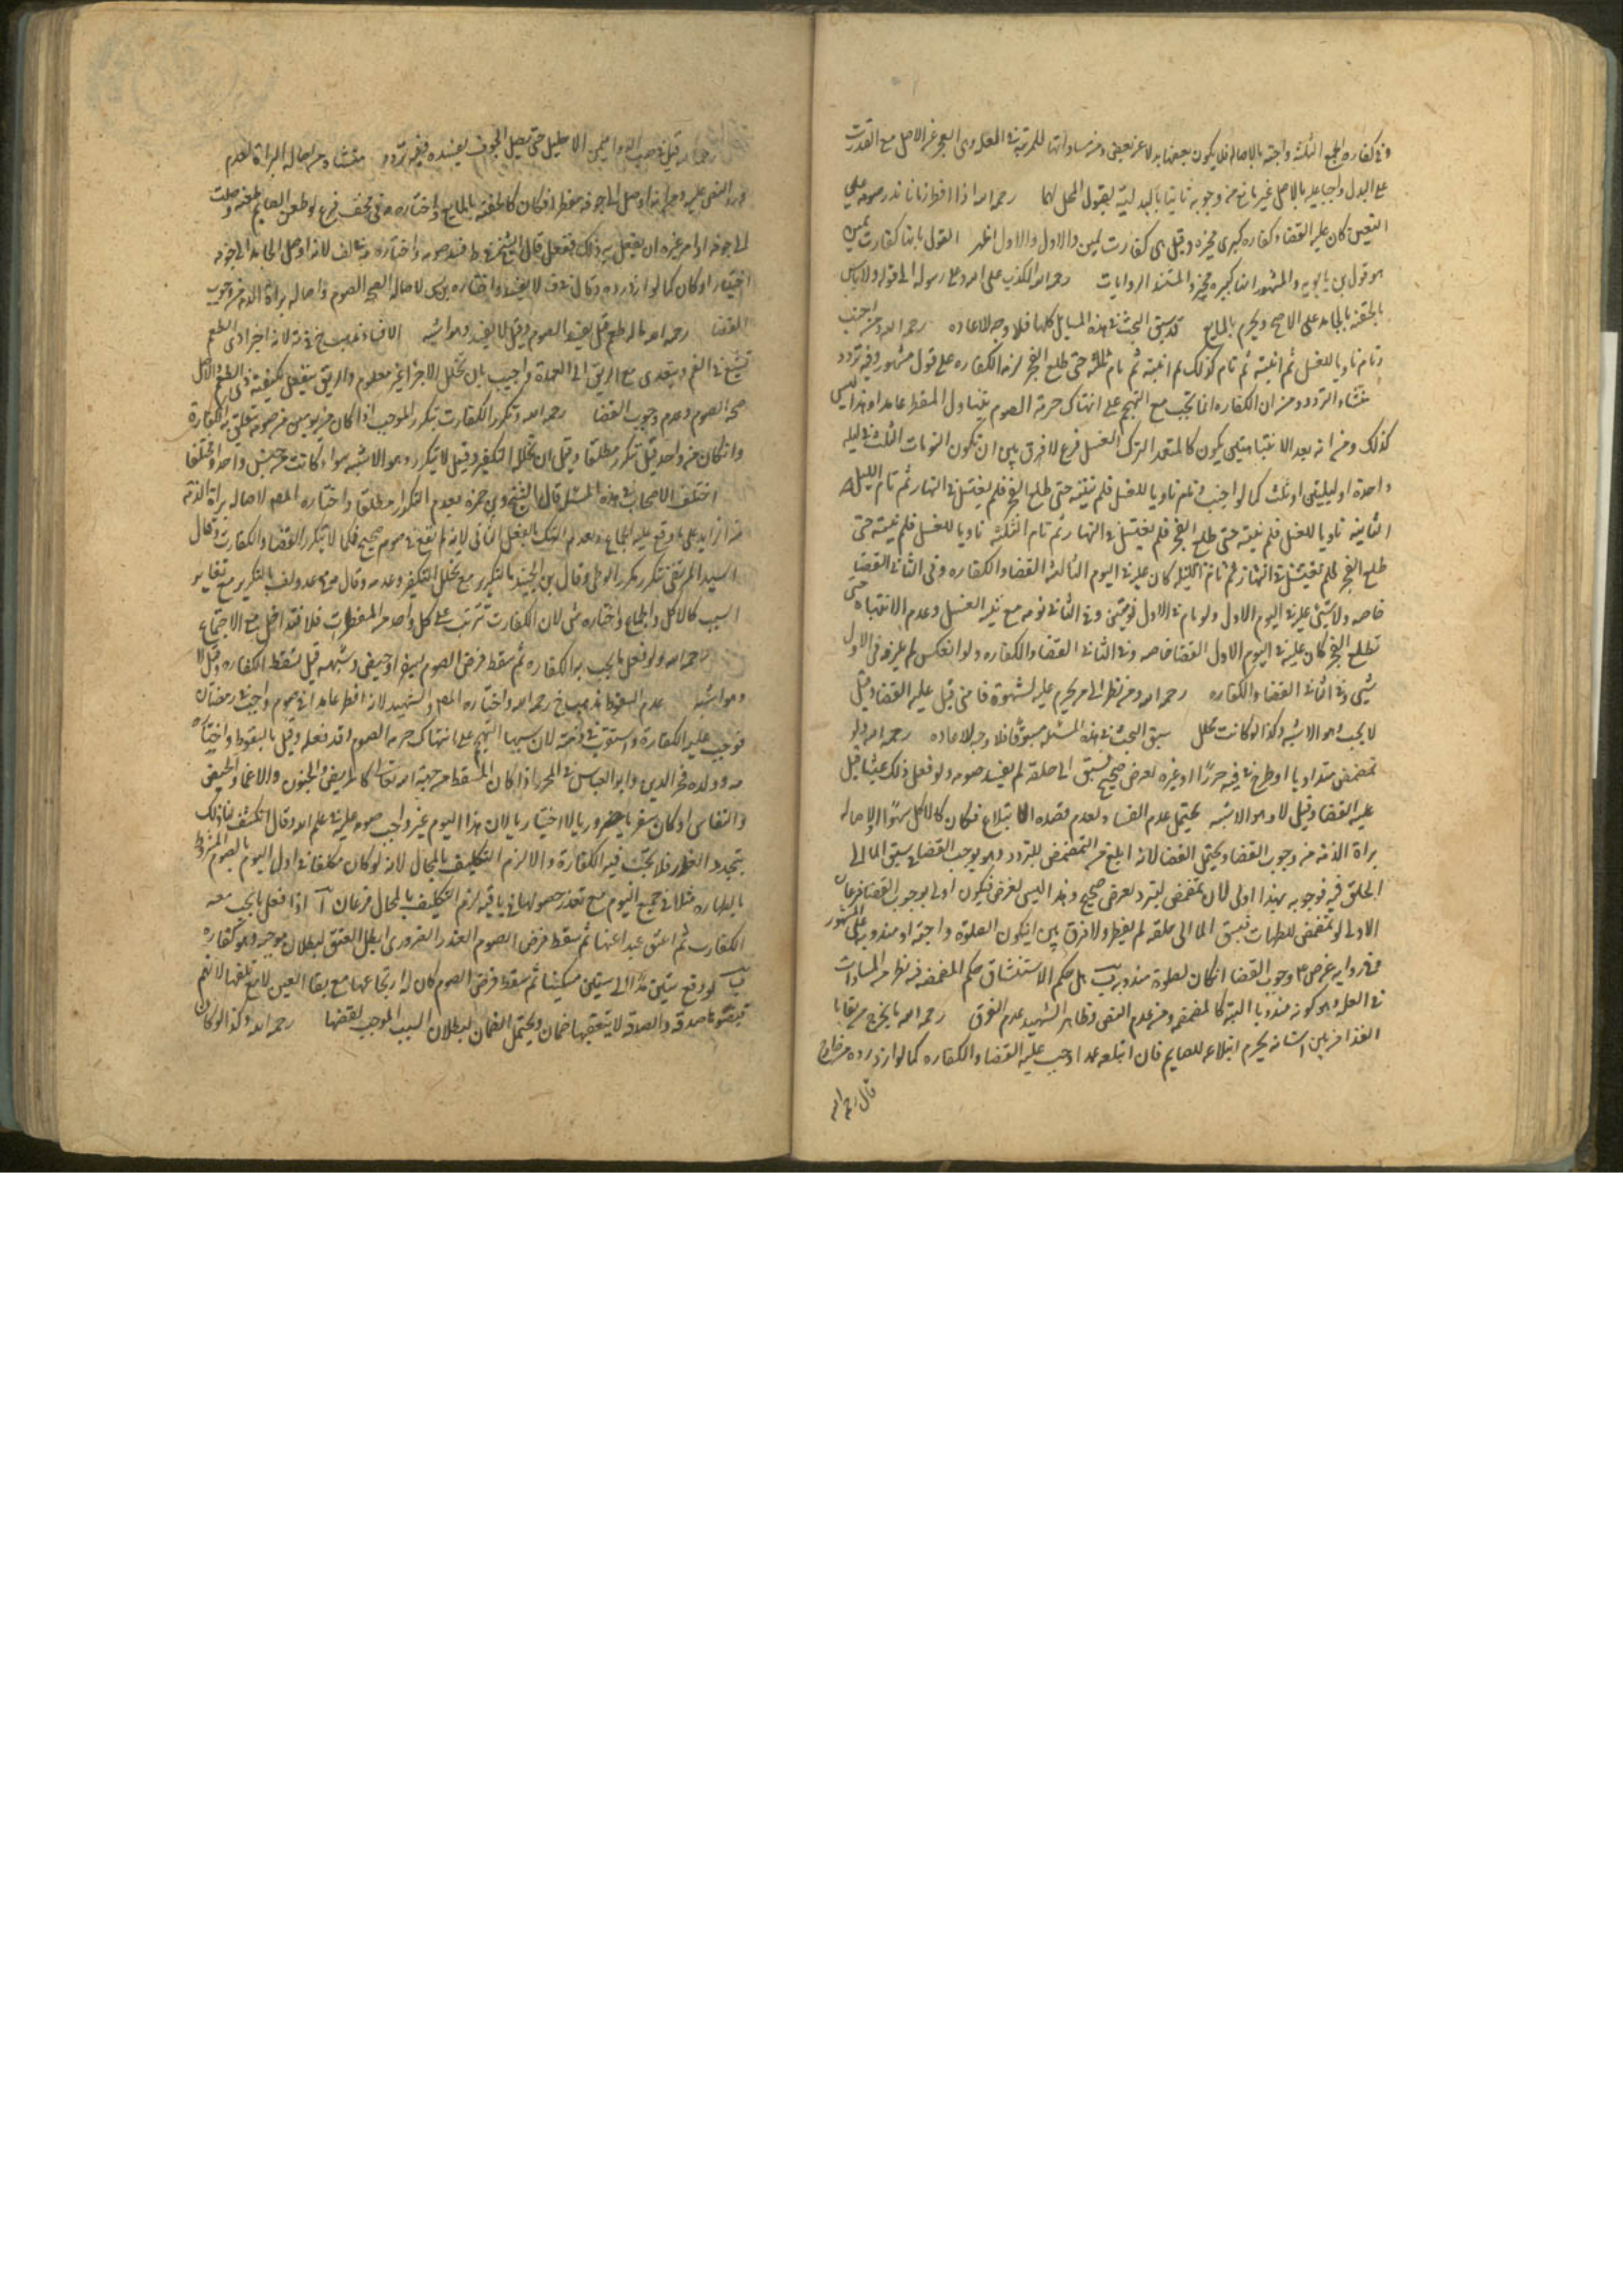 وفي كفاره الجمع الثلثه واجبة بالاصاله فلا يكون بعضها بدلا عن بعض ومن مساواتها للمرتبة في العله وهي العجز عن الاصل مع القدرت
على البدل واجبا عليه بالاصل غير مانع من وجوبه ثانيا بالبدليه بقبول المحل لهما رحمه الله اذا افطر زمانا نذر صومه على
التعيين كان عليه القضاء وكفاره كبرى مخيره وقيل هي كفارت يمين والاول اظهر القول بانها كفارت يمين
هو قول بن بابويه والمشهور انها كبيره مخيره والمستند الروايات رحمه الله الكذب على الله وعلى رسوله الى قوله ولا باس
بالحقنه بالجامد على الاصح ويحرم بالمايع قد سبق البحث في هذه المسايل كلها فلا وجه للاعاده رحمه الله ومن اجنب
ونام ناويا للغسل ثم انتبه ثم نام كذلك ثم انتبه ثم نام ثالثه حتى طلع الفجر لزمه الكفاره على قول مشهور وفيه تردد
منشاء التردد من ان الكفاره انما تجب مع التهجم على انتهاك حرمة الصوم بتناول المفطر عامدا وهذا ليس
كذلك ومن انه بعد الانتباهتين يكون كالمتعمد لترك الغسل فرع لا فرق بين ان تكون النومات الثلث في ليله
واحدة او ليلتين او ثلث كما لو اجنب ونام ناويا للغسل فلم ينتبه حتى طلع الفجر فلم يغتسل في النهار ثم نام الليله
الثانيه ناويا للغسل فلم ينتبه حتى طلع الفجر فلم يغتسل في النهار ثم نام الثلثه ناويا للغسل فلم ينتبه حتى
طلع الفجر فلم يغتسل في النهار كان عليه في اليوم الثالث القضا والكفاره وفي الثاني القضا
خاصه ولا شيئ عليه في اليوم الاول ولو نام في الاول نومتين وفي الثاني نومه مع نية الغسل وعدم الانتباه حتى
تطلع الفجر كان عليه في اليوم الاول القضا خاصه وفي الثاني القضا والكفاره ولو انعكس لم يلزمه في الاول
شيئ وفي الثاني القضا والكفاره رحمه الله ومن نظر الى من يحرم عليه لشهوة فامنى قيل عليه القضا وقيل
لا يجب وهو الاشبه وكذا لو كانت تحلل سبق البحث في هذه المسئله مستوفا فلا وجه للاعاده رحمه الله ولو
تمضمض متداويا او طرح في فيه خرزا او غيره لغرض صحيح فسبق الى حلقه لم يفسد صومه ولو فعل ذلك عبثا قيل
عليه القضا وقيل لا وهو الاشبه يحتمل عدم الفساد لعدم قصده الابتلاع فكان كالاكل سهوا ولاصاله
براة الذمة من وجوب القضا ويحتمل القضا لانه ابلغ من التمضمض للتبرد وهو يوجب القضا في سبق الما الى
الحلق فيه فوجوبه بهذا اولى لان تمضمض لتبرد لغرض صحيح وهذا ليس لغرض فيكون اولى بوجوب القضا فرعان
الاول لو تمضمض للطهات فسبق الما الى حلقه لم يفطر ولا فرق بين ان يكون الصلوة واجبة او مندوبه على المشهور
وجوب القضا ان كان لصلوة مندوبه ب هل حكم الاستنشاق حكم المضمضه فيه نظر من المساوات
في العله وهو كونه مندوبا اليه كالمضمضه ومن عدم النص وظاهر الشهيد عدم الفرق رحمه الله ما يخرج من بقايا
الغذا من بين اسنانه يحرم ابتلاعه للصايم فان ابتلعه عمدا وجب عليه القضا والكفاره كما لو ازدرده من خارج
قال رحمه الله
رحمه الله قيل في صب الدوا في الاحليل حتى يصل الجوف يفسده وفيه تردد منشاء من اصاله البراة لعدم
ورود النص عليه ومن انه اوصل الى جوفه مفطرا فكان كالحقنه بالمايع واختاره في المختلف فرع لو طعن الصايم طعنه وصلت
الى جوفه او امر غيره ان يفعل به ذلك ففعل قال الشيخ في ط فسد صومه واختاره لانه اوصل الجامد الى جوفه
اختيارا وكان كما لو ازدرده وقال في ف لا يفسد واختاره لاصاله صحه الصوم واصاله براة الذمه من وجوب
القضا رحمه الله ما له طعم قيل يفسد الصوم وقيل لا يفسده وهو اشبه الافساد مذهب لانه اجزا ذي الطعم
تشيع في الفم وتتعدى مع الريق الى المعدة واجيب بان تحلل الاجزا غير معلوم والريق ينفعل بكيفية ذي الطعم والاصل
صحه الصوم وعدم وجوب القضا رحمه الله وتكرر الكفارت بتكرر الموجب اذا كان في يومين من صوم يتعلق به الكفارة
وان كان في واحد قيل تكرر مطلقا وقيل ان تخلله التكفير وقيل لا يتكرر وهو الاشبه سواء كانت من جنس واحد او مختلفا
اختلف الاصحاب في هذه المسئله قال الشيخ وبن حمزه بعدم التكرار مطلقا واختاره المصنف لاصاله براة الذمة
من الزايد على ما وقع عليه الاجماع ولعدم الهتك بالفعل الثاني لانه لم يقع في صوم صحيح فكما لا يتكرر القضا والكفارت وقال
السيد المرتضى تتكرر بتكرر الوطى وقال بن الجنيد بالتكرير مع تخلل التكفير وعدمه وقال بالتكرير مع تغاير
السبب كالاكل والجماع واختاره لان الكفارت تترتب على كل واحد من المفطرات فلا تتداخل مع الاجتماع
رحمه الله ولو فعل ما يجب به الكفاره ثم سقط فرض الصوم بسفر او حيض وشبهه قيل تسقط الكفاره وقيل لا
وهو اشبه عدم السقوط مذهب رحمه الله واختاره المصنف والشهيد لانه افطر عامدا في صوم واجب في رمضان
فوجب عليه الكفارة واستقرت في ذمته لان سببها التهجم على انتهاك حرمه الصوم وقد فعله وقيل بالسقوط واختاره
وولده فخر الدين وابو العباس في المحرر اذا كان المسقط من جهة الله تعالى كالمريض والجنون والاغما والحيض
والنفاس او كان سفرا ضروريا لا اختياريا لان هذا اليوم غير واجب صومه عليه في علم الله وقد انكشف لنا ذلك
بتجدد العذر فلا يجب فيه الكفارة والا لزم التكليف بالمحال لانه لو كان مكلفا في اول اليوم بالصوم المشروط
بالطهاره مثلا في جميع اليوم مع تعذر حصولها في باقيه لزم التكليف بالمحال فرعان آ اذا فعل ما يجب معه
الكفارت ثم اعتق عبدا عنها ثم سقط فرض الصوم العذر الضروري ابطل العتق لبطلان موجبه وهو كفاره
ب لو دفع ستين مدا الى ستين مسكينا ثم سقط فرض الصوم كان له ارتجاعها مع بقا العين لا مع تلفها لانهم
قبضوها صدقه والصدقه لا يتعقبها ضمان ويحتمل الضمان لبطلان السبب الموجب لقبضها رحمه الله وكذا لو كان